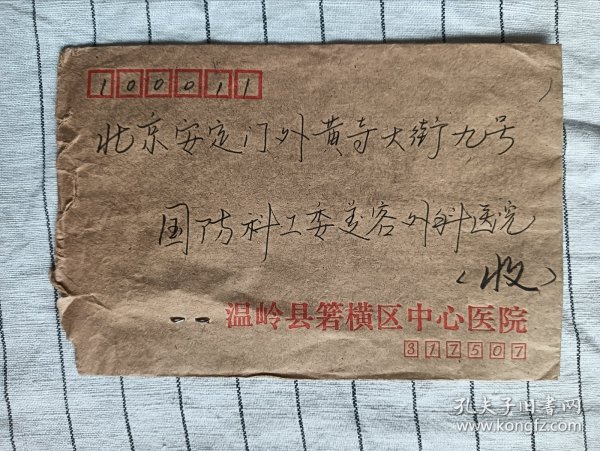 100011
北京安定门外黄寺大街九号
国防科工委美容外科医院
（收）
温岭县箬横区中心医院
317507
孔夫子旧书网
www.kongfz.com